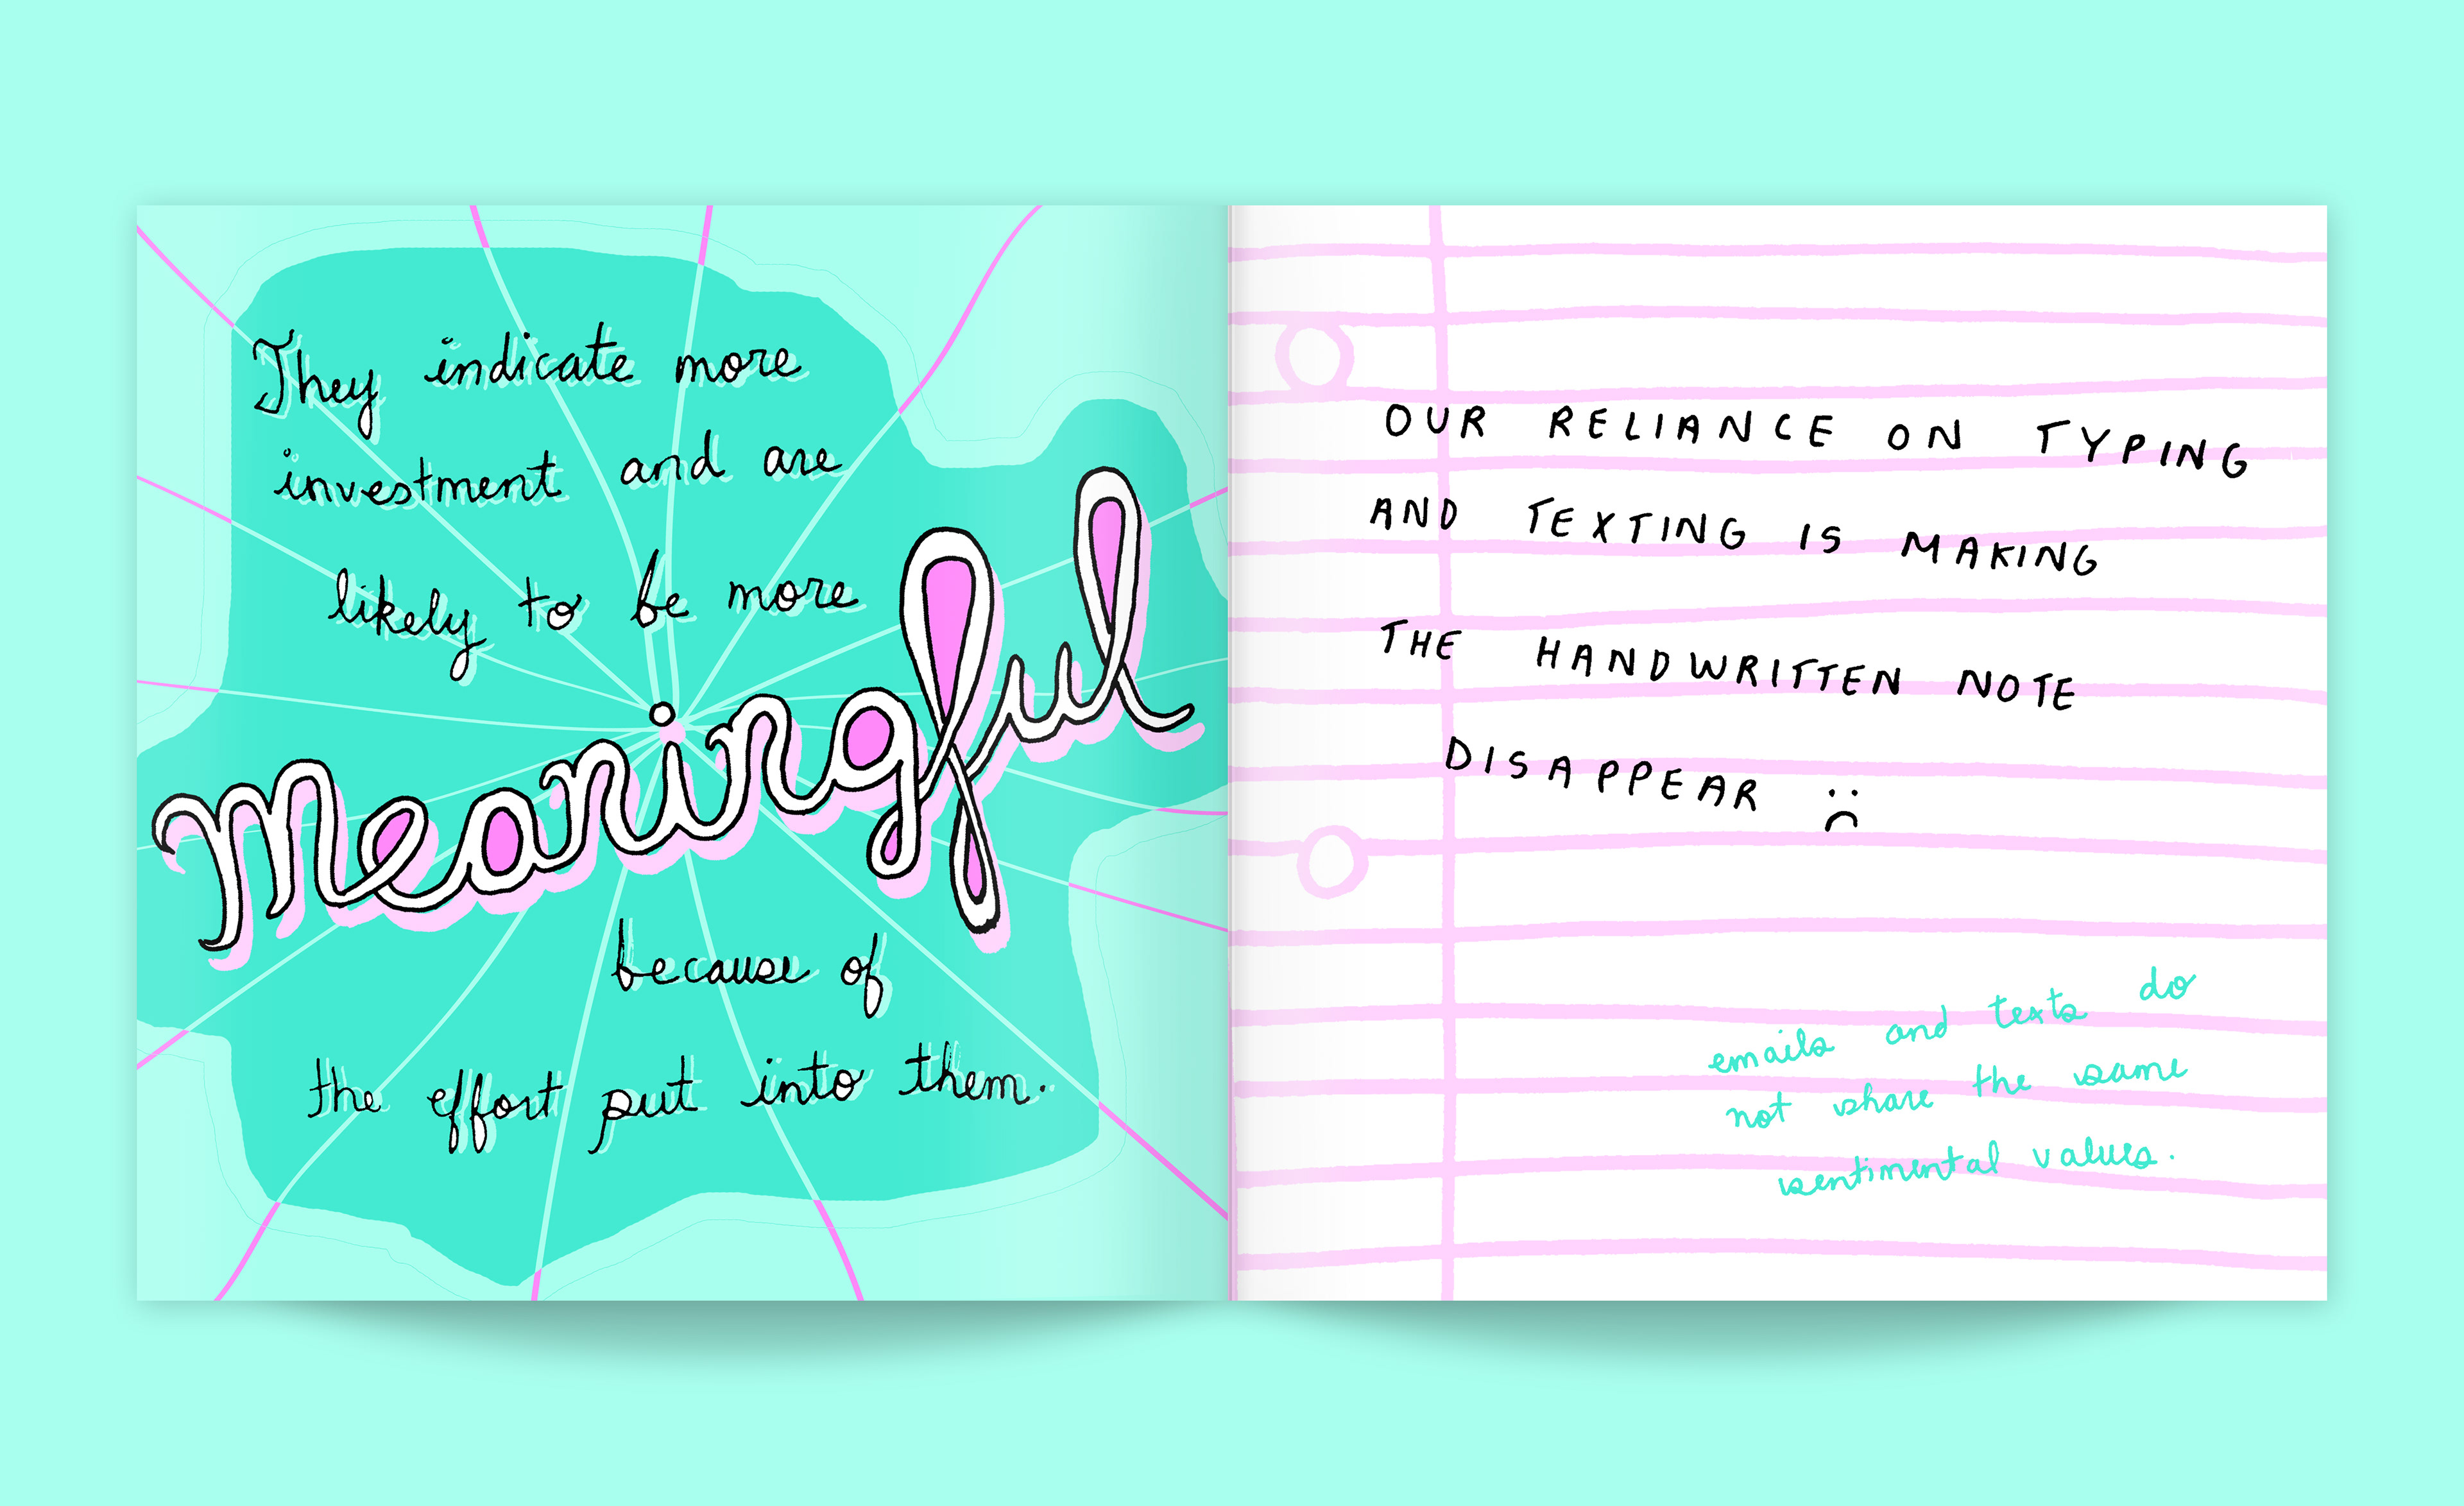 They indicate more
investment and are
likely to be more
meaningful
because of
the effort put into them.
OUR RELIANCE ON TYPING
AND TEXTING IS MAKING
THE HANDWRITTEN NOTE
DISAPPEAR :(
emails and texts do
not share the same
sentimental values.